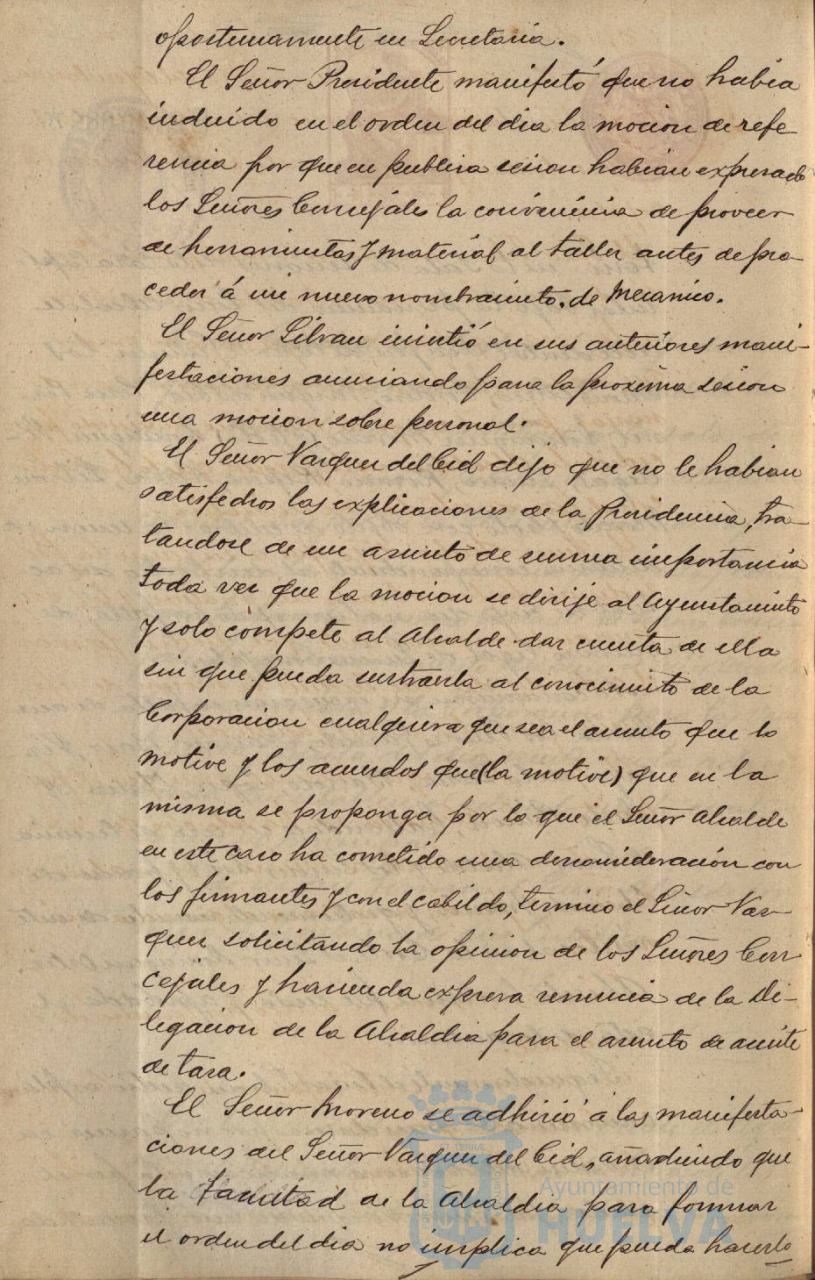 oportunamente en Secretaria.
El Señor Presidente manifestó que no habia
incluido en el orden del dia la mocion de refe-
rencia por que en publica sesion habian expresado
los Señores Concejales la conveniencia de proveer
de herramientas y material al taller antes de pro-
ceder á un nuevo nombramiento de Mecanico.
El Señor Silvan insistió en sus anteriores mani-
festaciones anunciando para la proxima sesion
una mocion sobre personal.
El Señor Vazquez del Cid dijo que no le habian
satisfechos las explicaciones de la Presidencia, tra-
tandose de un asunto de suma importancia
toda vez que la mocion se dirije al Ayuntamiento
y solo compete al Alcalde dar cuenta de ella
sin que pueda sustraerla al conocimiento de la
Corporacion cualquiera que sea el asunto que lo
motive y los acuerdos que (la motive) que en la
misma se proponga por lo que el Señor Alcalde
en este caso ha cometido una desconsideración con
los firmantes y con el cabildo, termino el Señor Vaz-
quez solicitando la opinion de los Señores Con
cejales y hacienda expresa renuncia de la De-
legacion de la Alcaldia para el asunto de aceite
de tasa.
El Señor Moreno se adhirió á las manifesta-
ciones del Señor Vazquez del Cid, añadiendo que
la facultad de la Alcaldia para formar
el orden del dia no implica que pueda hacerlo
Ayuntamiento de
HUELVA